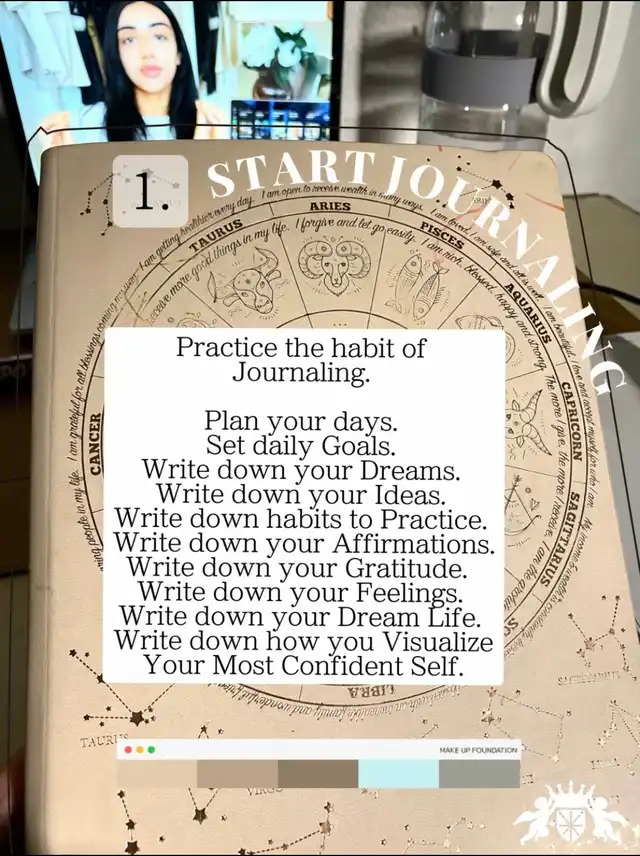 1.
START JOURNALING
I am getting healthier every day. I am open to receive wealth in many ways. I am loved, I am safe and all is well.
TAURUS
ARIES
PISCES
AQUARIUS
CAPRICORN
SAGITTARIUS
CANCER
LIBRA
receive more good things in my life. I forgive and let go easily. I am rich, blessed, happy and strong. The more I give, the more I receive.
I am grateful for all blessings coming my way.
people in my life.
Practice the habit of
Journaling.
Plan your days.
Set daily Goals.
Write down your Dreams.
Write down your Ideas.
Write down habits to Practice.
Write down your Affirmations.
Write down your Gratitude.
Write down your Feelings.
Write down your Dream Life.
Write down how you Visualize
Your Most Confident Self.
TAURUS
MAKE UP FOUNDATION
VIRGO